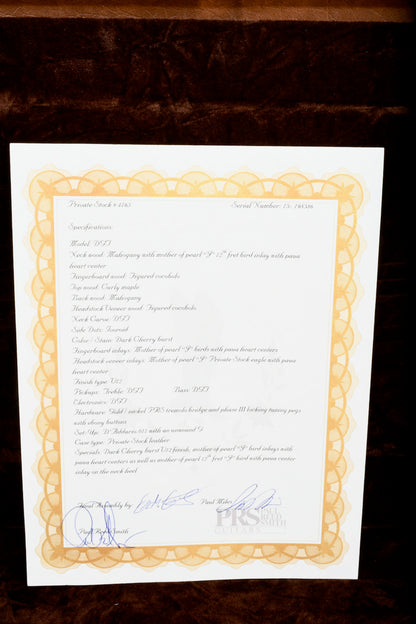 Private Stock # 4765 Serial Number: 13- 198586
Specifications:
Model: DGT
Neck wood: Mahogany with mother of pearl "J" 12th fret bird inlay with paua
heart center
Fingerboard wood: Figured cocobolo
Top wood: Curly maple
Back wood: Mahogany
Headstock Veneer wood: Figured cocobolo
Neck Carve: DGT
Side Dots: Inward
Color / Stain: Dark Cherry burst
Fingerboard inlays: Mother of pearl "J" birds with paua heart centers
Headstock veneer inlays: Mother of pearl "J" Private Stock eagle with paua
heart center
Finish type:
Pickups: Treble: DGT Bass: DGT
Electronics: DGT
Hardware: Gold / nickel PRS tremolo bridge and phase III locking tuning pegs
with ebony buttons
Set-Up: D'Addario .011 with an unwound G
Case type: Private Stock leather
Specials: Dark Cherry burst finish, mother of pearl "J" bird inlays with
paua heart centers as well as mother of pearl "J" bird with paua center
inlay on the neck heel
Final Assembly by Paul Miles
Paul Reed Smith
PRS PAUL REED SMITH
GUITARS